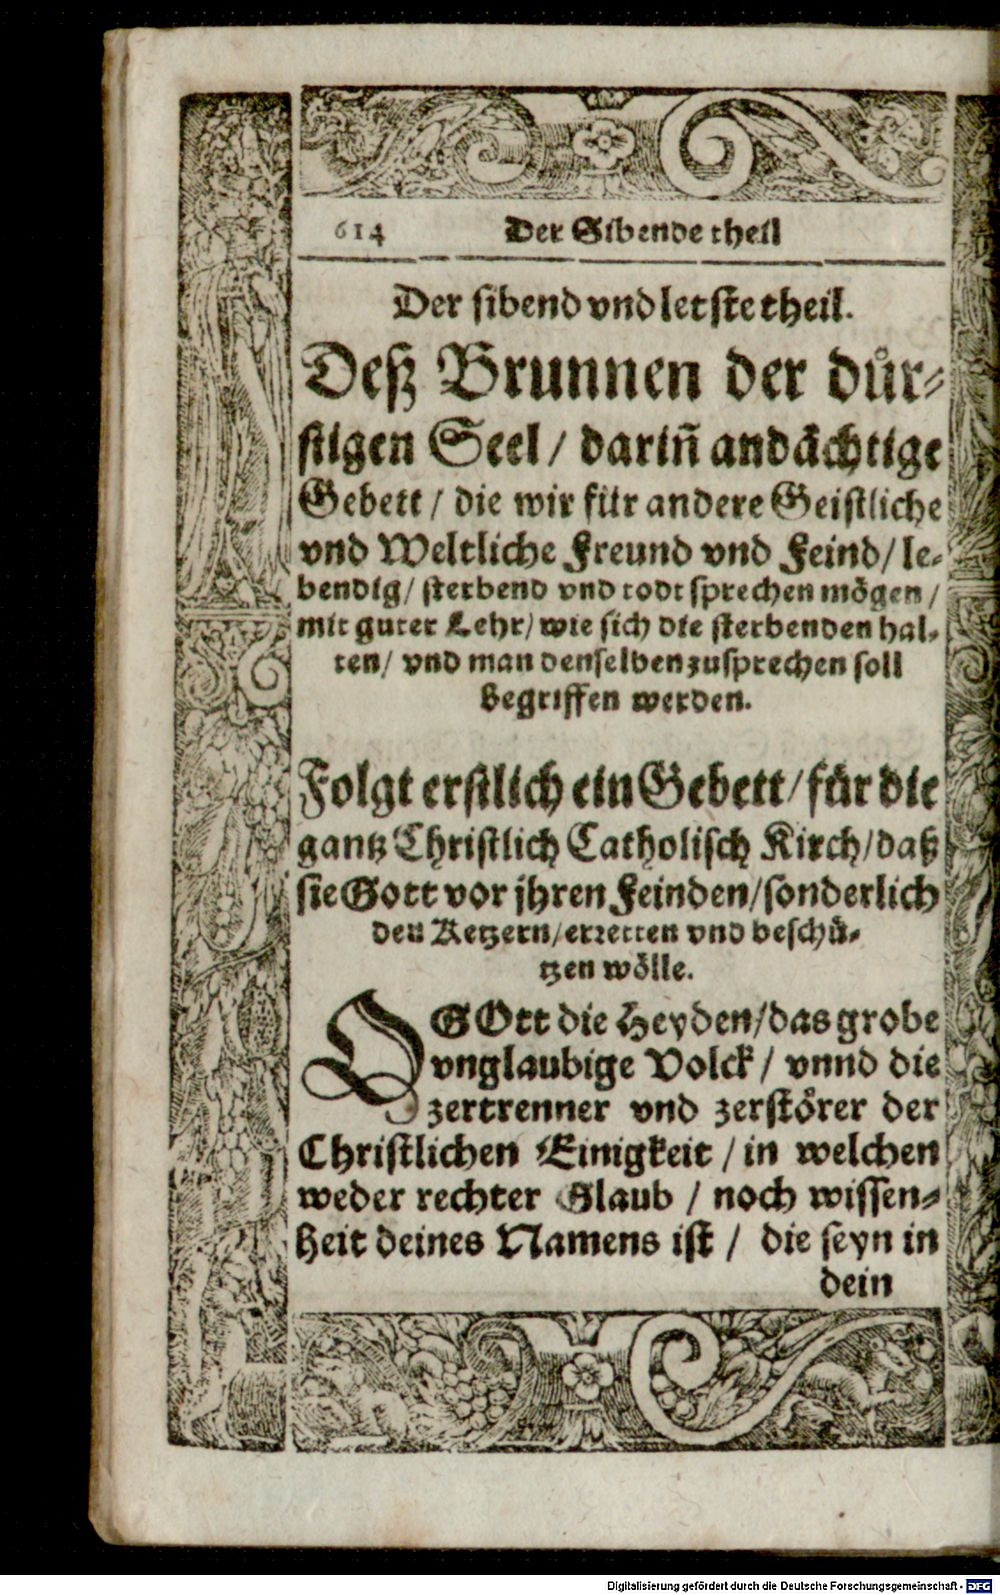 614 Der Sibende theil
Der sibend vnd letste theil.
Deß Brunnen der důr⸗
stigen Seel / dariñ andächtige
Gebett / die wir für andere Geistliche
vnd Weltliche Freund vnd Feind / le⸗
bendig / sterbend vnd todt sprechen mögen /
mit guter Lehr / wie sich die sterbenden hal⸗
ten / vnd man denselben zusprechen soll
begriffen werden.
Folgt erstlich ein Gebett / für die
gantz Christlich Catholisch Kirch / daß
sie Gott vor jhren Feinden / sonderlich
den Ketzern / erretten vnd beschü⸗
tzen wölle.
O GOtt die Heyden / das grobe
vnglaubige Volck / vnnd die
zertrenner vnd zerstörer der
Christlichen Einigkeit / in welchen
weder rechter Glaub / noch wissen⸗
heit deines Namens ist / die seyn in
dein
Digitalisierung gefördert durch die Deutsche Forschungsgemeinschaft - DFG